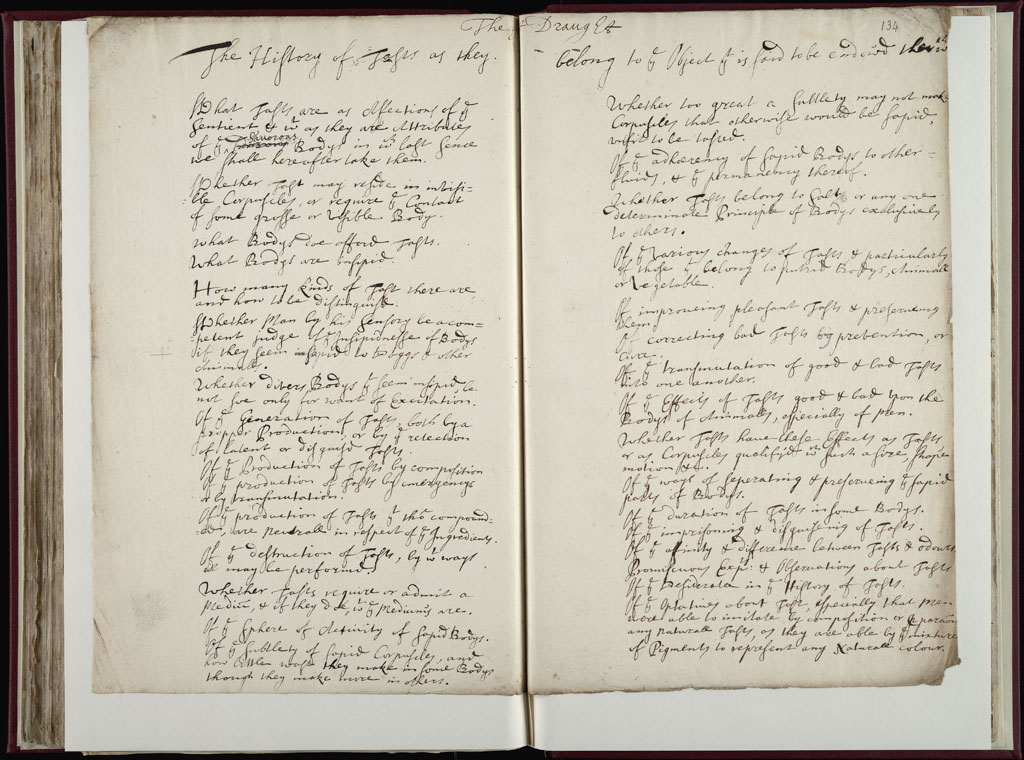 The Draught
134
The History of Tasts as they
belong to ye Object yt is said to be endowed therwth
What Tasts are as Affections of ye
Sentient & wt as they are Attributes
of ye Savorous Bodys in wch last sence
we shall hereafter take them.
Whether Tast may reside in invisi=
=ble Corpuscles, or require ye Contact
of some grosse or Visible Body.
What Bodys doe afford Tasts.
What Bodys are insipid.
How many kinds of Tast there are
and how to be distinguisht.
Whether Man by his Sensory be a com=
=petent judge of ye Insipidnesse of Bodys
if they seem sapid to Doggs & other
Animalls.
Whether divers Bodys yt seem insipid, be
not soe only for want of Excitation.
Of ye Generation of Tasts both by a
propper Production, or by ye retection
of latent or disguisd Tasts.
Of ye Production of Tasts by composition
Of ye production of Tasts by emergency
or by transmutation.
Of ye production of Tasts yt tho compound=
=ed, are neutrall in respect of ye Ingredients.
Of ye destruction of Tasts, by wt ways
it may be performd.
Whether Tasts require or admit a
Mediū, & if they do, wt ye Mediums are.
Of ye Sphere of Activity of Sapid Bodys.
Of ye Subtlety of Sapid Corpuscles, and
how little wast they make in some Bodys
though they make more in others.
Whether too great a Subtlety may not make
Corpuscles that otherwise would be sapid
unfit to be tasted.
Of ye adhærency of sapid Bodys to other
fluids, & ye permanency thereof.
Whether Tasts belong to Salts or any one
determinate Principle of Bodys exclusively
to others.
Of ye Various changes of Tasts & particularly
of those yt belong to putrid Bodys, Animall
or Vegetable.
Of improveing pleasant Tasts & preserveing
them.
Of correcting bad Tasts by prevention, or
Cure.
Of ye transmutation of good & bad Tasts
into one another.
Of ye Effects of Tasts good & bad upon the
Bodys of Animalls, especially of Men.
Whether Tasts have these Effects as Tasts,
or as Corpuscles qualifyd wth such a size, shape
motion &c.
Of ye ways of seperating & preserveing ye sapid
parts of Bodys.
Of ye duration of Tasts in some Bodys.
Of ye imprisoning & disguising of Tasts.
Of ye affinity & difference between Tasts & odours
Promiscuous Expts & Observations about Tasts
Of ye Desiderata in ye History of Tasts.
Of ye Optatives about Tast, especially that Men
were able to imitate by composition or
any naturall Tasts, as they are able by ye mixture
of Pigments to represent any Naturall colour.